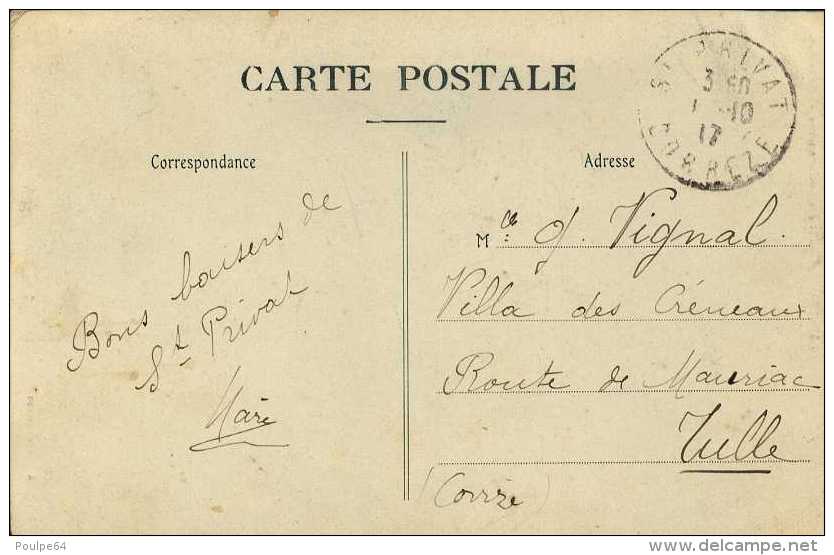 CARTE POSTALE
Correspondance
Bons baisers de
St Privat
Adresse
Mlle J. Vignal.
Villa des Créneaux
Route de Mauriac
Tulle
(Corrèze)
ST PRIVAT
17
CORREZE
Poulpe64
www.delcampe.net